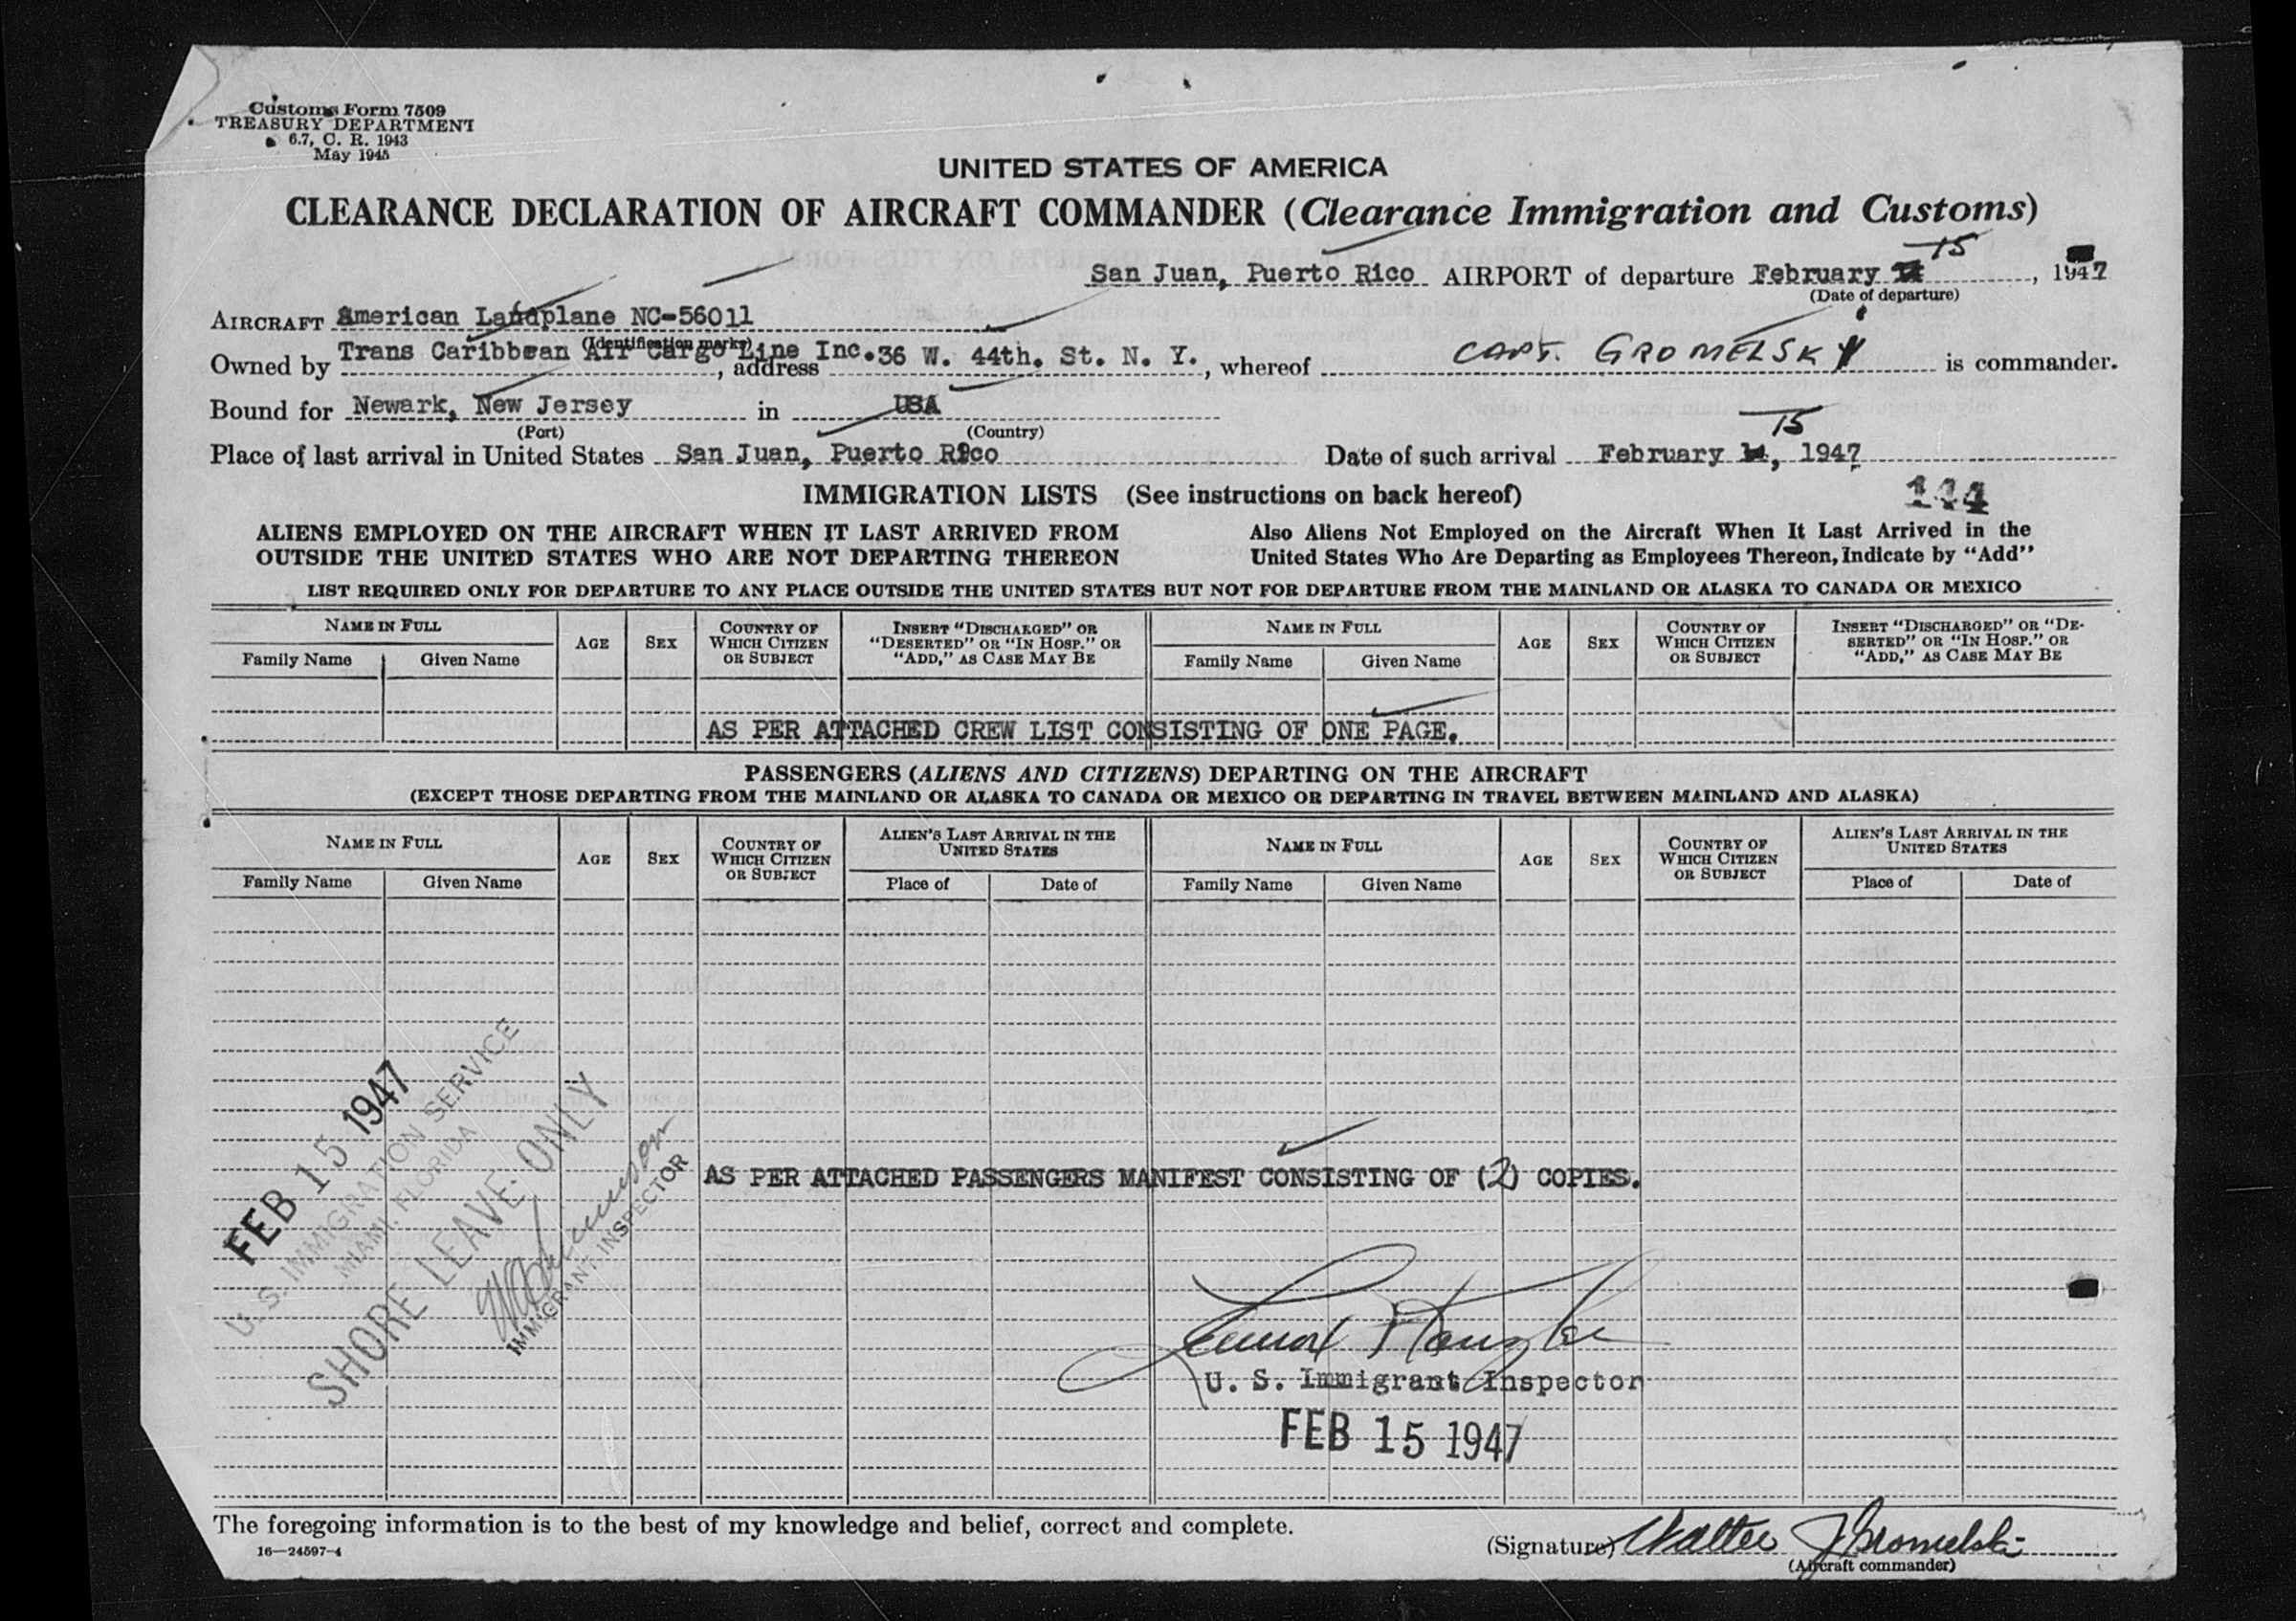 Customs Form 7509
TREASURY DEPARTMENT
6.7, C. R. 1943
May 1945
UNITED STATES OF AMERICA
CLEARANCE DECLARATION OF AIRCRAFT COMMANDER (Clearance Immigration and Customs)
San Juan, Puerto Rico AIRPORT of departure February 15, 1947
(Date of departure)
AIRCRAFT American Landplane NC-56011
(Identification marks)
Owned by Trans Caribbean Air Cargo Line Inc., address 36 W. 44th. St. N. Y., whereof CAPT. GROMELSKY is commander.
Bound for Newark, New Jersey in USA
(Port) (Country)
Place of last arrival in United States San Juan, Puerto Rico Date of such arrival February 15, 1947
IMMIGRATION LISTS (See instructions on back hereof) 144
ALIENS EMPLOYED ON THE AIRCRAFT WHEN IT LAST ARRIVED FROM
OUTSIDE THE UNITED STATES WHO ARE NOT DEPARTING THEREON
Also Aliens Not Employed on the Aircraft When It Last Arrived in the
United States Who Are Departing as Employees Thereon, Indicate by "Add"
LIST REQUIRED ONLY FOR DEPARTURE TO ANY PLACE OUTSIDE THE UNITED STATES BUT NOT FOR DEPARTURE FROM THE MAINLAND OR ALASKA TO CANADA OR MEXICO
NAME IN FULL
Family Name Given Name
AGE
SEX
COUNTRY OF
WHICH CITIZEN
OR SUBJECT
INSERT "DISCHARGED" OR
"DESERTED" OR "IN HOSP." OR
"ADD," AS CASE MAY BE
NAME IN FULL
Family Name Given Name
AGE
SEX
COUNTRY OF
WHICH CITIZEN
OR SUBJECT
INSERT "DISCHARGED" OR "DE-
SERTED" OR "IN HOSP." OR
"ADD," AS CASE MAY BE
AS PER ATTACHED CREW LIST CONSISTING OF ONE PAGE.
PASSENGERS (ALIENS AND CITIZENS) DEPARTING ON THE AIRCRAFT
(EXCEPT THOSE DEPARTING FROM THE MAINLAND OR ALASKA TO CANADA OR MEXICO OR DEPARTING IN TRAVEL BETWEEN MAINLAND AND ALASKA)
NAME IN FULL
Family Name Given Name
AGE
SEX
COUNTRY OF
WHICH CITIZEN
OR SUBJECT
ALIEN'S LAST ARRIVAL IN THE
UNITED STATES
Place of Date of
NAME IN FULL
Family Name Given Name
AGE
SEX
COUNTRY OF
WHICH CITIZEN
OR SUBJECT
ALIEN'S LAST ARRIVAL IN THE
UNITED STATES
Place of Date of
FEB 15 1947
U. S. IMMIGRATION SERVICE
MIAMI, FLORIDA
SHORE LEAVE ONLY
IMMIGRANT INSPECTOR
AS PER ATTACHED PASSENGERS MANIFEST CONSISTING OF (2) COPIES.
U. S. Immigrant Inspector
FEB 15 1947
The foregoing information is to the best of my knowledge and belief, correct and complete.
16—24597-4
(Signature) Walter J Gromelski
(Aircraft commander)